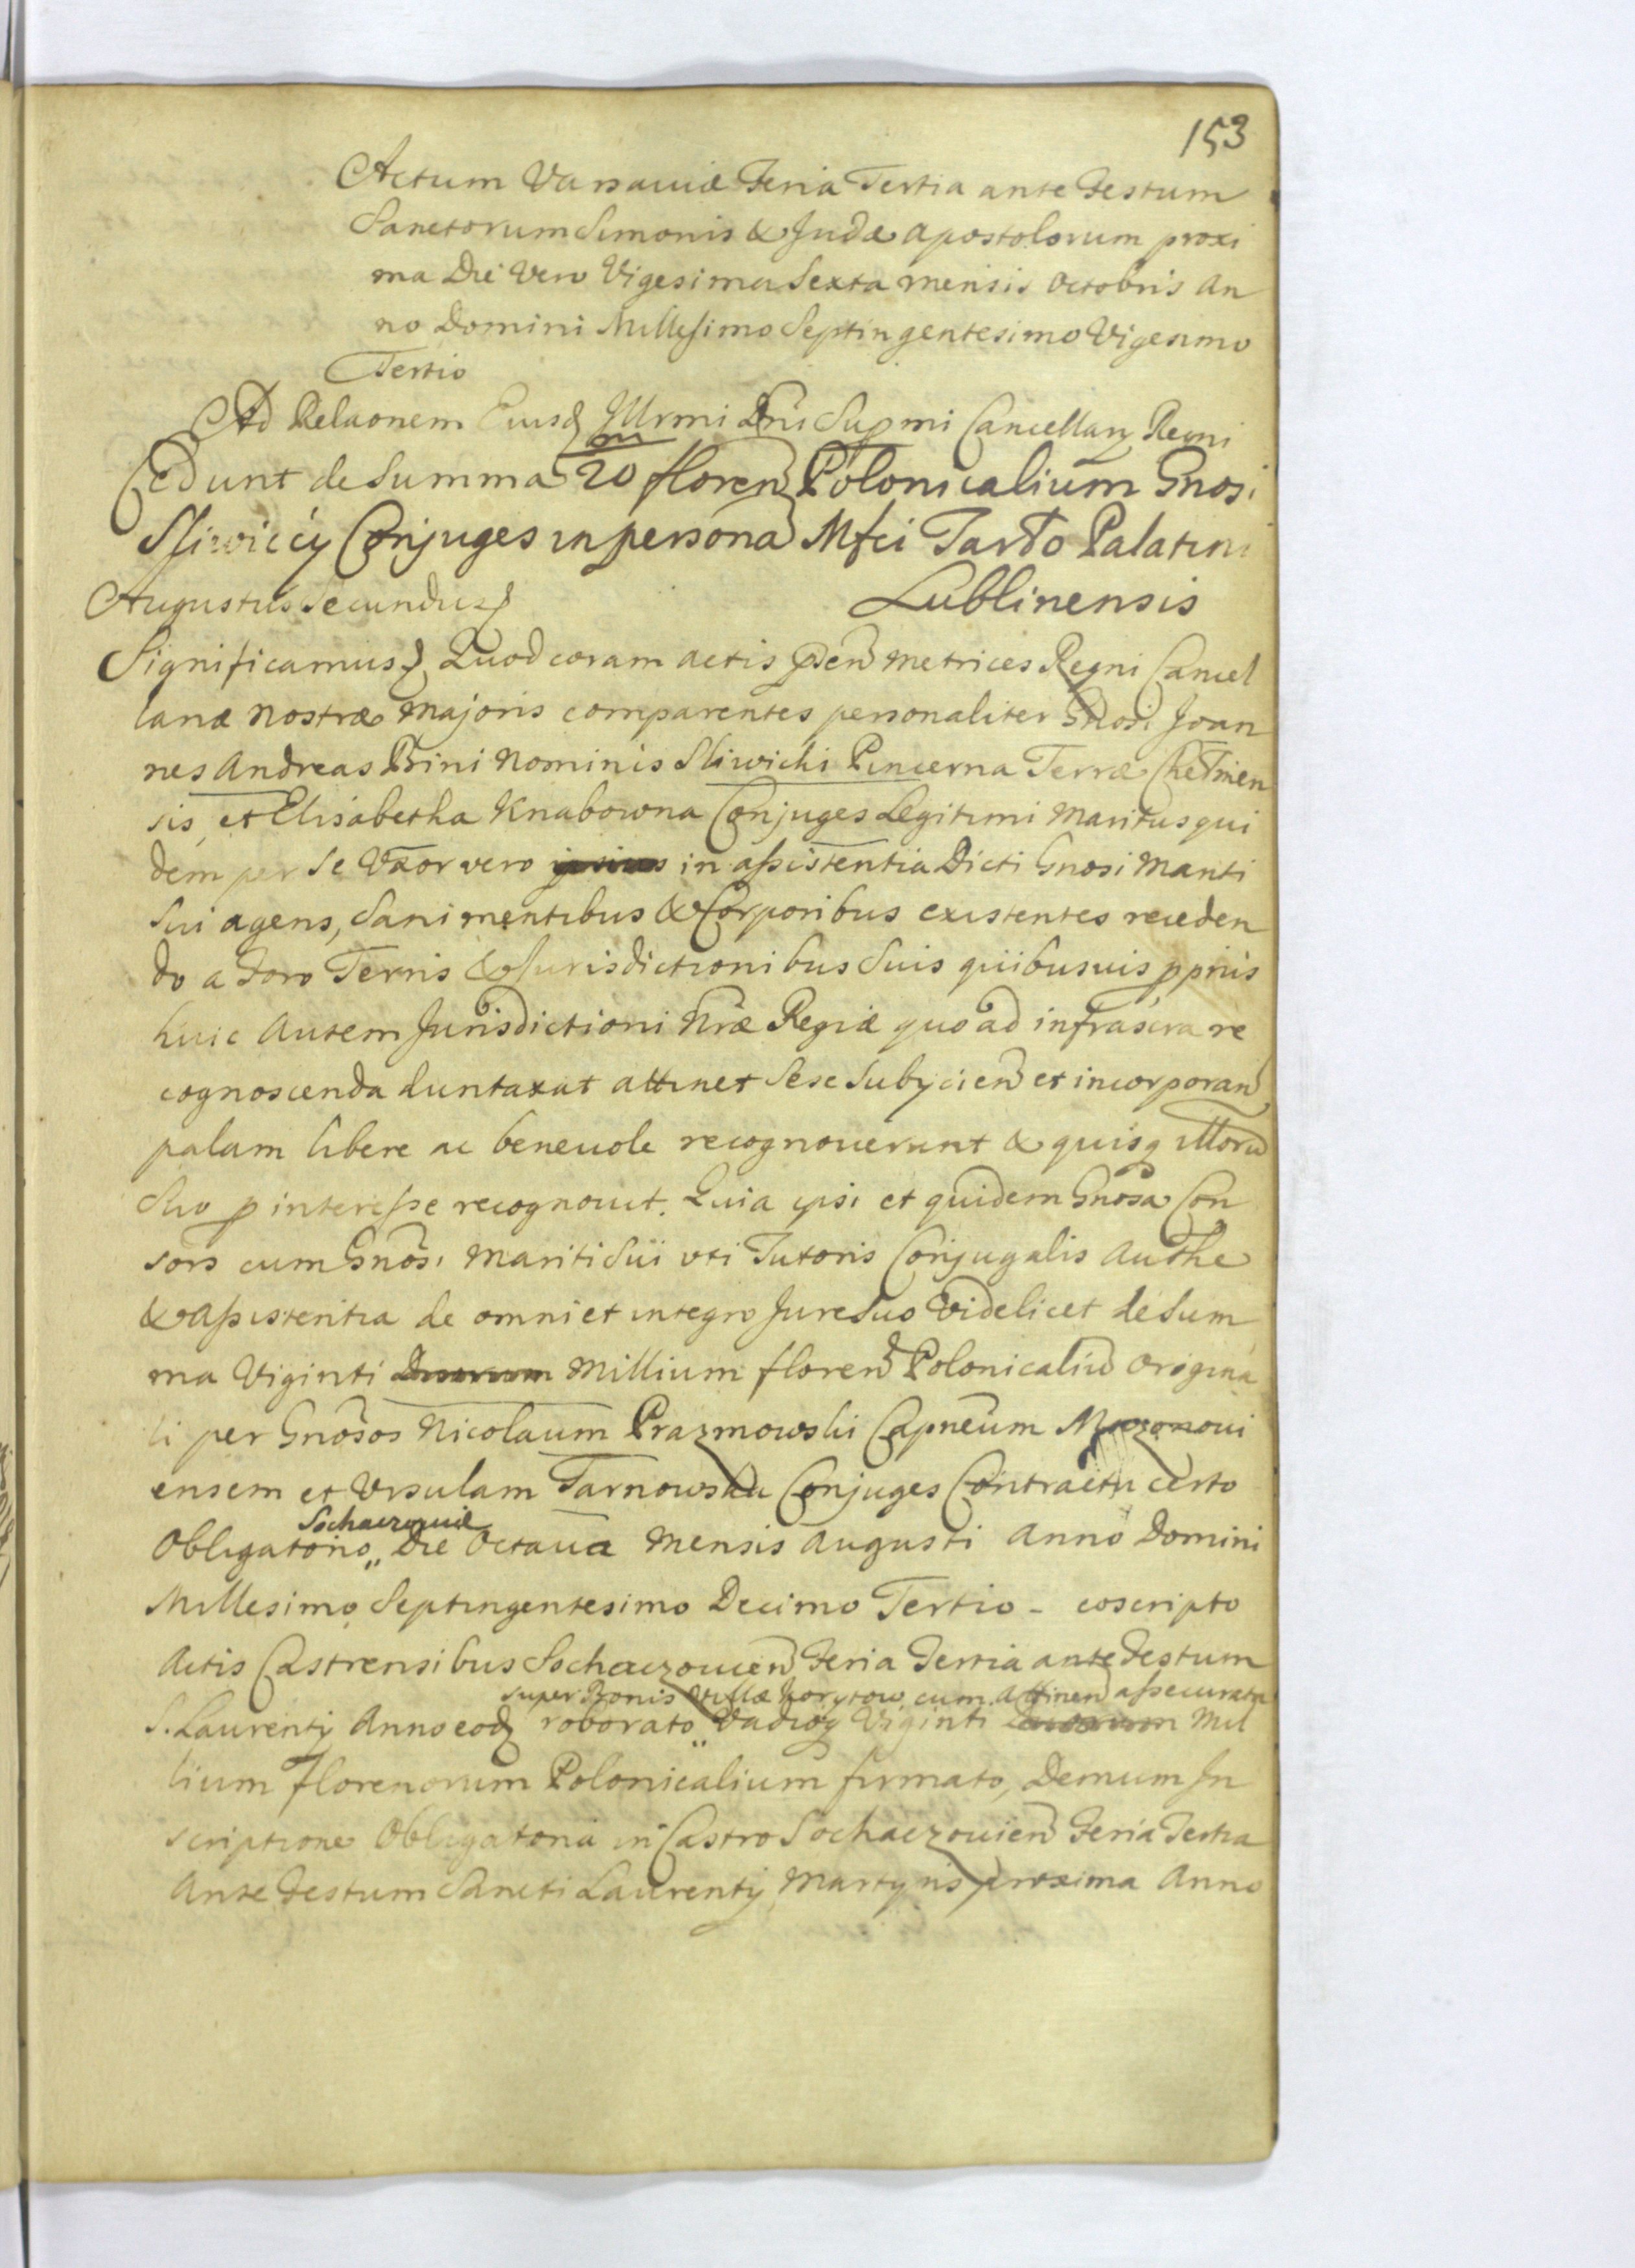 153
Actum Varsaviæ Feria Tertia ante Festum
Sanctorum Simonis & Judæ Apostolorum proxi
ma Die Vero Vigesima Sexta mensis Octobris An
no Domini Millesimo Septingentesimo Vigesimo
Tertio
Ad Relaonem Eiusd Illrmi Dni Supmi Cancellary Regni
Cedunt de Summa 20 m floren Polonicalium Gnosi
Sliwiccy Conjuges in persona Mfci Tarło Palatini
Lublinensis
Augustus Secundus
Significamus Quod coram actis pten Metrices Regni Cancel
lariæ Nostræ Majoris comparentes personaliter Gnosi Joan
nes Andreas Bini Nominis Sliwicki Pincerna Terræ Chełmen
sis et Elisabetha Knabowna Conjuges Legitimi Maritus qui
dem per se Uxor vero in assistentia Dicti Gnosi Mariti
Sui agens, Sani mentibus & Corporibus existentes receden
do a Foro Terris & Jurisdictionibus Suis quibusvis ppriis
huic Autem Jurisdictioni Nræ Regiæ quo ad infrascra re
cognoscenda duntaxat attinet Sese Subijcien et incorporan
palam libere ac beneuole recognouerunt & quisq illoru
Suo p interesse recognouit. Quia ipsi et quidem Gnosa Con
sors cum Gnosi Mariti Sui uti Tutoris Conjugalis Authe
& Assistentia de omni et integro Jure Suo Videlicet de Sum
ma Viginti Duorum Millium floren Polonicaliu Origina
li per Gnosos Nicolaum Prazmowski Capneum Mozonoui
ensem et Ursulam Tarnowska Conjuges Contractu certo
Sochaczouiæ
Obligatorio „ Die Octaua Mensis Augusti Anno Domini
Millesimo Septingentesimo Decimo Tertio - coscripto
Actis Castrensibus Sochaczouien Feria Tertia ante Festum
super Bonis Villæ Korytow cum Attinen assecurata
S. Laurenty Anno eod roborato „ Vadioq Viginti Duorum Mil
lium Florenorum Polonicalium firmato, Demum In
scriptione Obligatoria in Castro Sochaczouien Feria Tertia
Ante Festum Sancti Laurenty Martyris proxima Anno